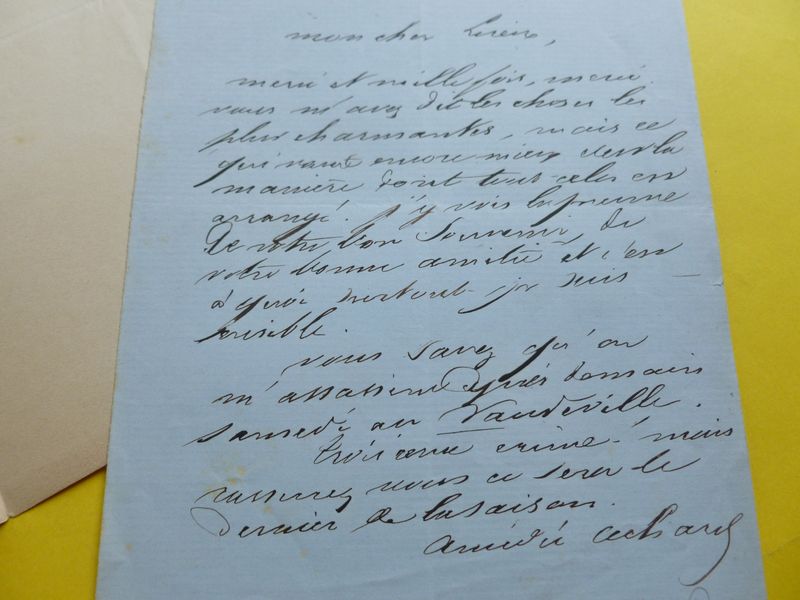 mon cher
merci et mille fois, merci
vous m'avez dit les choses les
plus charmantes, mais ce
qui vaut encore mieux c'est la
manière dont tout cela est
arrangé. j'y vois la preuve
De votre bon souvenir, de
votre bonne amitié et c'est
à quoi surtout je suis
sensible.
vous savez qu'on
m'assassine après demain
samedi au Vaudeville.
troisième crime! mais
rassurez vous ce sera le
dernier de la saison.
Amédée Achard